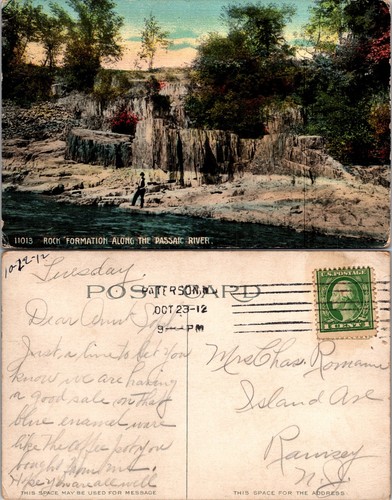 11013 ROCK FORMATION ALONG THE PASSAIC RIVER.
10-22-12
Tuesday.
POST CARD
PATERSON, N.J.
OCT 23-12
9 - PM
U.S. POSTAGE
1 CENT 1
Dear Aunt
Just a line to let you
know we are having
a good sale on that
blue enamel ware
like the coffee pot you
bought from me.
Hope you are all well
Mrs Chas. Romaine
Island Ave
Ramsey
N.J.
THIS SPACE MAY BE USED FOR MESSAGE
THIS SPACE IS FOR THE ADDRESS.